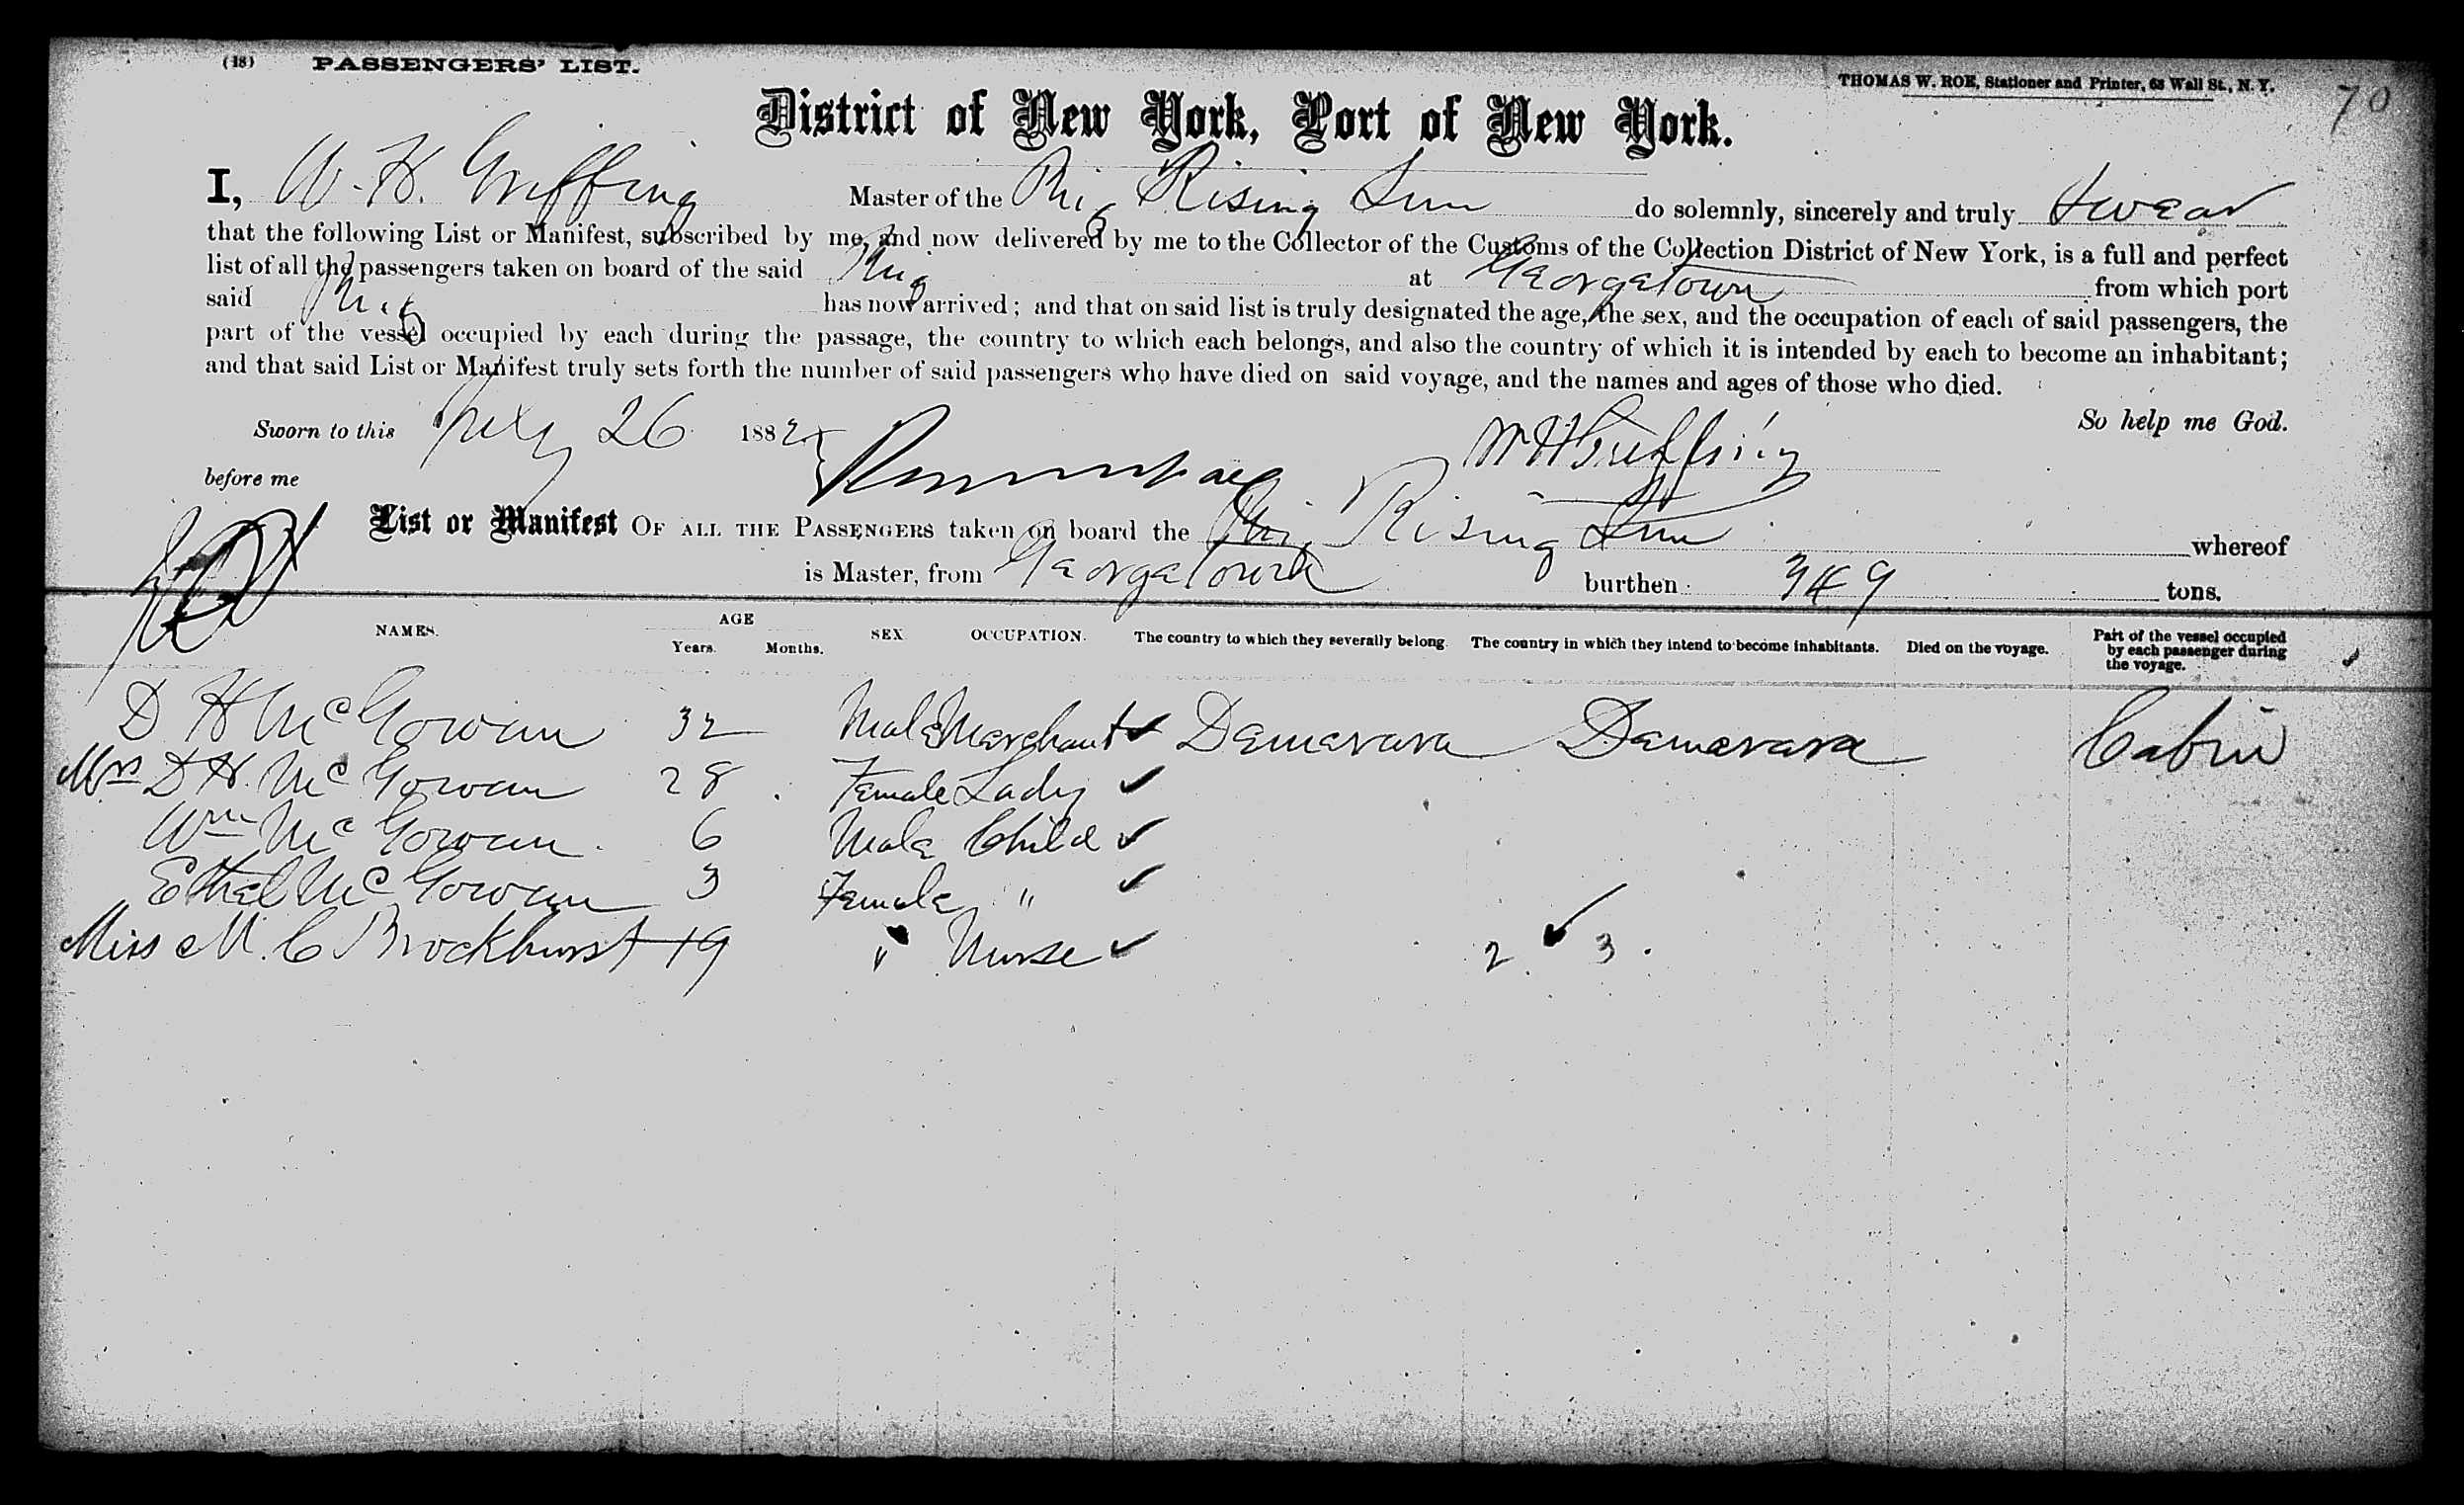 (18) PASSENGERS' LIST.
THOMAS W. ROE, Stationer and Printer, 63 Wall St., N. Y.
70
District of New York, Port of New York.
I, W. H. Griffing Master of the Brig Rising Sun do solemnly, sincerely and truly swear
that the following List or Manifest, subscribed by me, and now delivered by me to the Collector of the Customs of the Collection District of New York, is a full and perfect
list of all the passengers taken on board of the said Brig at Georgetown from which port
said Brig has now arrived; and that on said list is truly designated the age, the sex, and the occupation of each of said passengers, the
part of the vessel occupied by each during the passage, the country to which each belongs, and also the country of which it is intended by each to become an inhabitant;
and that said List or Manifest truly sets forth the number of said passengers who have died on said voyage, and the names and ages of those who died.
So help me God.
Sworn to this July 26 1882
W H Griffing
before me
List or Manifest OF ALL THE PASSENGERS taken on board the Brig Rising Sun whereof
is Master, from Georgetown burthen 349 tons.
NAMES. AGE Years. Months. SEX. OCCUPATION. The country to which they severally belong. The country in which they intend to become inhabitants. Died on the voyage. Part of the vessel occupied by each passenger during the voyage.
D H McGowan 32 Male Merchant ✓ Demerara Demerara Cabin
Mrs D H. McGowan 28 Female Lady ✓
Wm McGowan 6 Male Child ✓
Ethel McGowan 3 Female " ✓
Miss M. C Brockhurst 19 " Nurse ✓ 2 ✓ 3